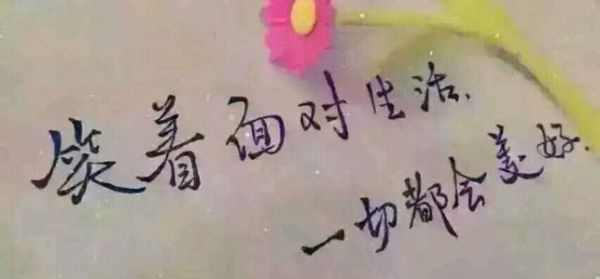 笑着面对生活、
一切都会美好.